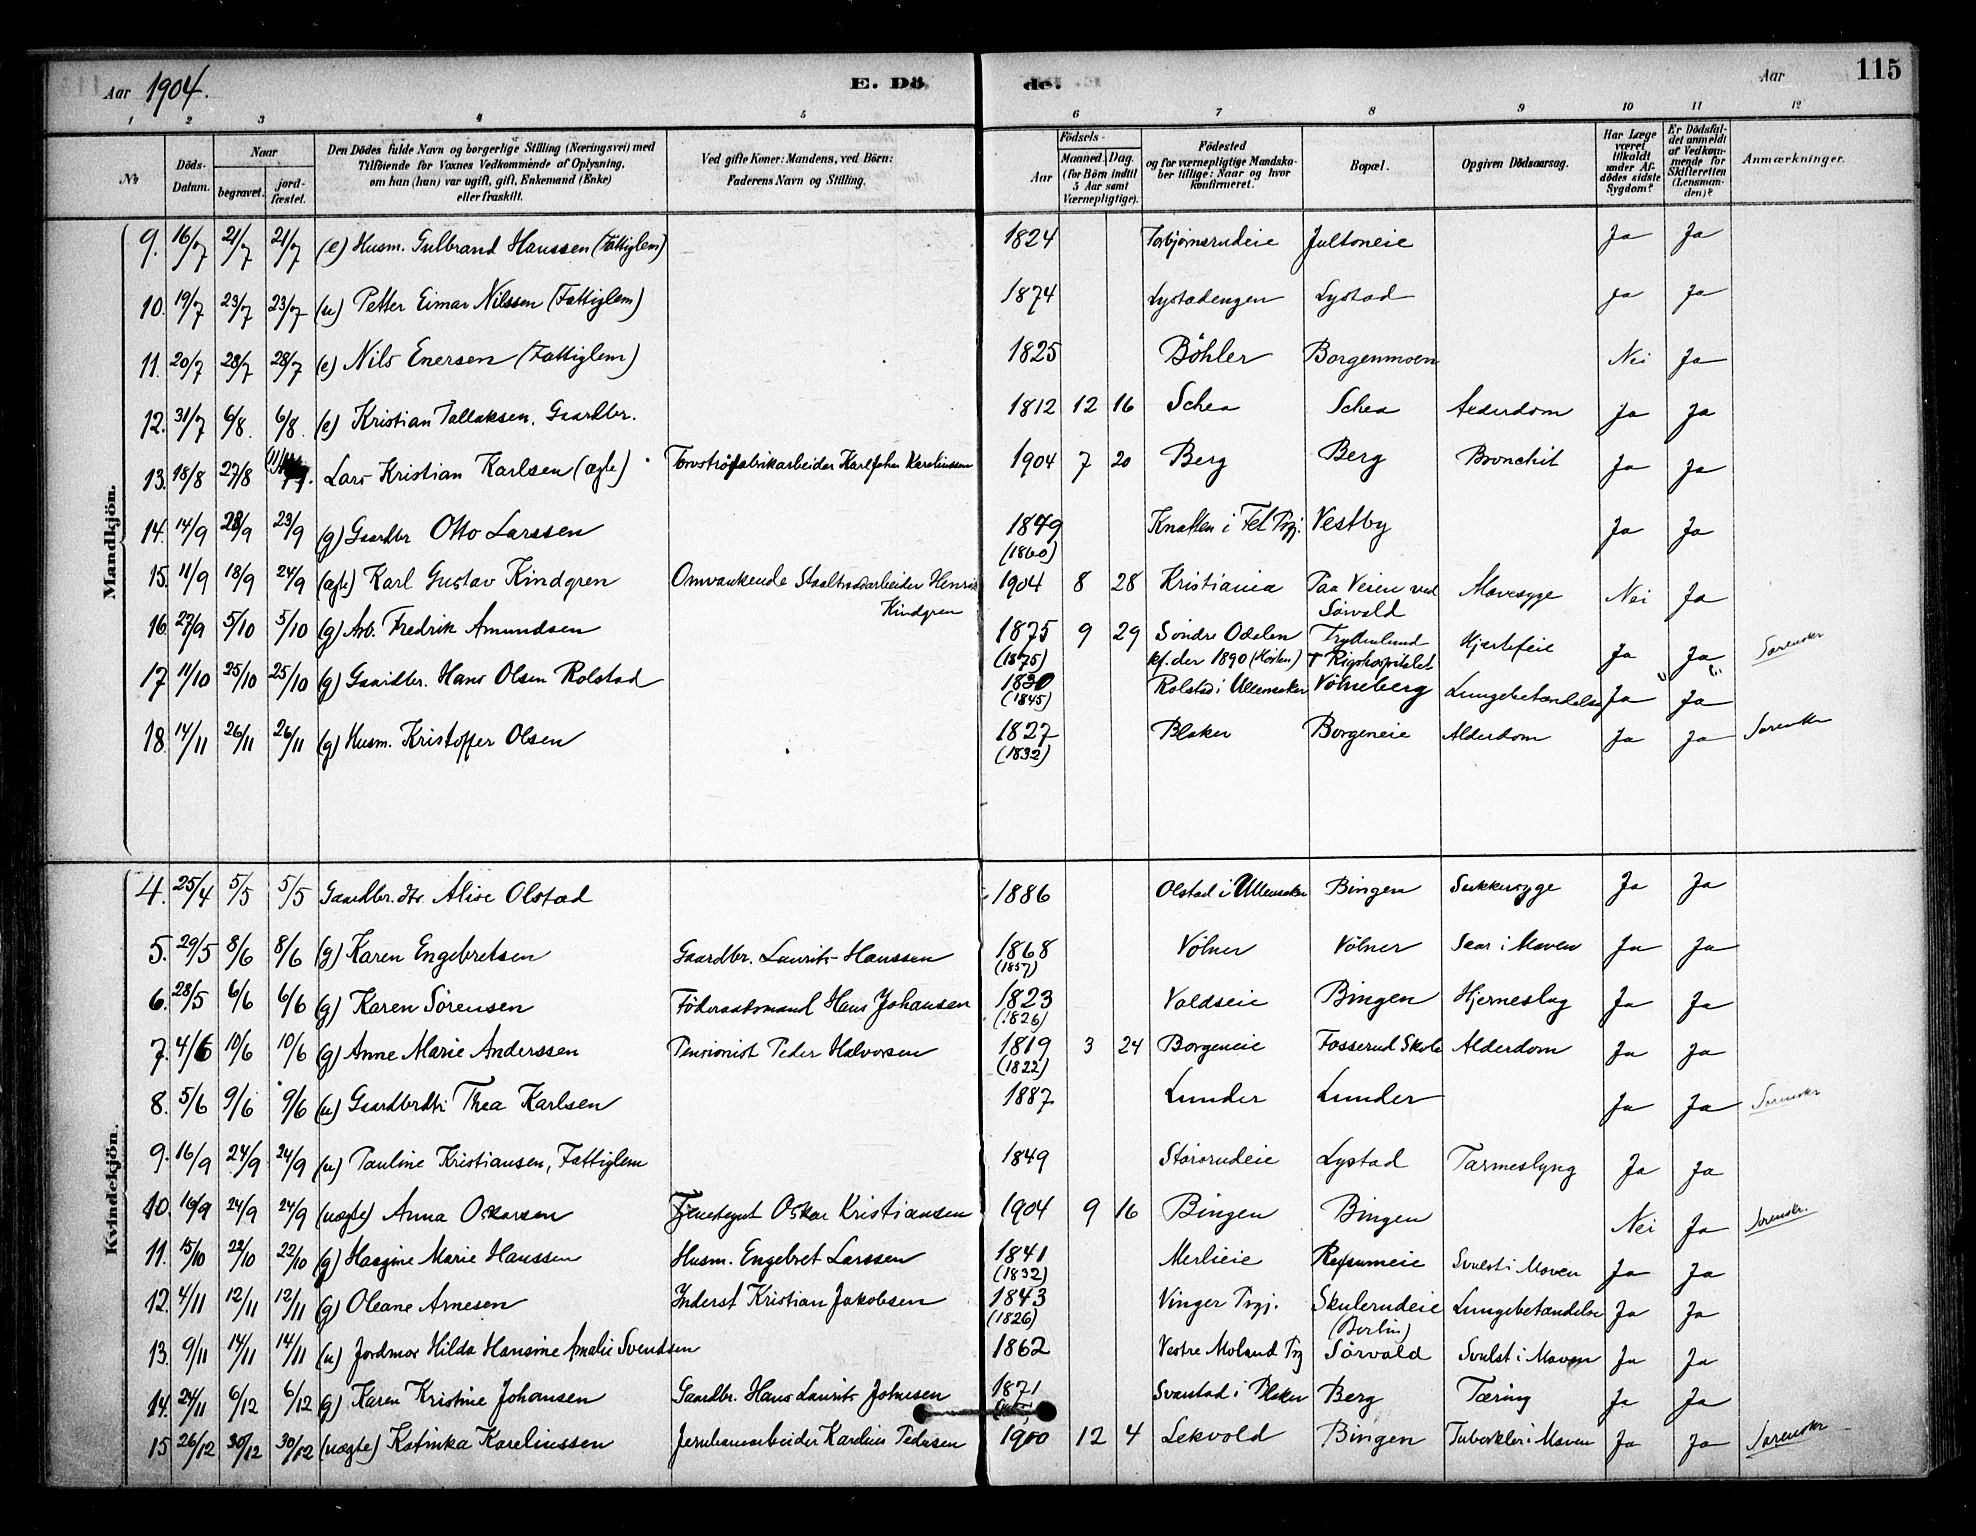 Aar 1904. E. Dö de. Aar 115
1 2 3 4 5 6 7 8 9 10 11 12
No Döds-Datum. Naar begravet. jordfæstet. Den Dödes fulde Navn og borgerlige Stilling (Næringsvei) med Tilföiende for Voxnes Vedkommende af Oplysning, om han (hun) var ugift, gift, Enkemand (Enke) eller fraskilt. Ved gifte Koner: Mandens, ved Börn: Faderens Navn og Stilling. Födsels- Aar Maaned. Dag. (for Börn indtil 5 Aar samt Værnepligtige). Födested og for værnepligtige Mandskaber tillige: Naar og hvor konfirmeret. Bopæl. Opgiven Dödsaarsag. Har Læge været tilkaldt under Afdödes sidste Sygdom? Er Dödsfaldet anmeldt af Vedkommende for Skifteretten (Lensmanden)? Anmærkninger.
Mandkjön.
9. 16/7 21/7 21/7 (e) Husm. Gulbrand Hanssen (Fattiglem) 1824 Torbjørnsrudeie Jultoneie Ja Ja
10. 19/7 23/7 23/7 (u) Petter Eimar Nilssen (Fattiglem) 1874 Lystadengen Lystad Ja Ja
11. 20/7 28/7 28/7 (e) Nils Enersen (Fattiglem) 1825 Böhler Borgenmoen Nei Ja
12. 31/7 6/8. 6/8. (e) Kristian Tollaksen. Gaardbr. 1812 12 16 Schea Schea Alderdom Ja Ja
13. 18/8 27/8 Lars Kristian Karlsen (ægte) Torvströfabrikarbeider Karl Johan Kareliussen 1904 7 20 Berg Berg Bronchit Ja Ja
14. 14/9 23/9 23/9 (g) Gaardbr Otto Larssen 1849 (1860) Knatten i Fet Prgj. Vestby Ja Ja
15. 11/9 18/9 24/9 (ægte) Karl Gustav Kindgren Omvankende Staaltraadarbeider Henrik Kindgren 1904 8 28 Kristiania Paa Veien ved Sörvald Mavesyge Nei Ja
16. 27/9 5/10 5/10 (g) Arb. Fredrik Amundsen 1875 (1875) 9 29 Söndre Odalen kf. der 1890 (Hösten) † Rigshospitalet Hjertefeil Ja Ja Sorenskr
17 11/10 25/10 25/10 (g) Gaardbr. Hans Olsen Rolstad 1830 (1845) Rolstad i Ullensaker Völneberg Lungebetændelse Ja Ja
18. 14/11 26/11 26/11 (g) Husm. Kristoffer Olsen 1827 (1832) Blaker Borgeneie Alderdom Ja Ja Sorenskr
Kvindekjön.
4. 25/4 5/5 5/5 Gaardbr. dtr. Alise Olstad 1886 Olstad i Ullensaker Bingen Sukkersyge Ja Ja
5. 29/5 8/6 8/6 (g) Karen Engebretsen Gaardbr. Laurits Hanssen 1868 (1857) Völner Völner Saar i Maven Ja Ja
6. 28/5 6/6 6/6 (g) Karen Sörensen Föderaadsmand Hans Johansen 1823 (1826) Valdseie Bingen Hjerneslag Ja Ja
7. 4/6 10/6 10/6 (g) Anne Marie Anderssen Pensionist Peder Halvorsen 1819 (1822) 3 24 Borgeneie Fosserud Skole Alderdom Ja Ja
8. 5/6 9/6 9/6 (u) Gaardbrdtr Thea Karlsen 1887 Lunder Lunder Ja Ja Sorenskr
9. 16/9 24/9 24/9 (u) Pauline Kristiansen, Fattiglem 1849 Stórorudeie Lystad Tarmeslyng Ja Ja
10. 19/9 24/9 24/9 (uægte) Anna Oskarsen Tjenestegut Oskar Kristiansen 1904 9 16 Bingen Bingen Nei Ja Sorenskr.
11. 15/10 22/10 22/10 (g) Haagine Marie Hanssen Husm. Engebret Larssen 1841 (1832) Merlieie Refsumeie Svulst i Maven Ja Ja
12. 4/11 12/11 12/11 (g) Oleane Arnesen Inderst Kristian Jakobsen 1843 (1826) Vinger Prgj. Skulerudeie (Berlin) Lungebetændelse Ja Ja
13. 9/11 14/11 14/11 (u) Jordmor Hilda Hansine Amalie Svendsen 1862 Vestre Moland Prgj Sörvald Svulst i Maven Ja Ja
14. 24/11 6/12 6/12 (g) Karen Kristine Johansen Gaardbr. Hans Laurits Johnesen 1871 Svarstad i Blaker Berg Tæring Ja Ja
15 26/12 30/12 30/12 (uægte) Katinka Kareliussen Jernbanearbeider Karelius Pedersen 1900 12 4 Lekvold Bingen Tuberkler i Maven Ja Ja Sorenskr